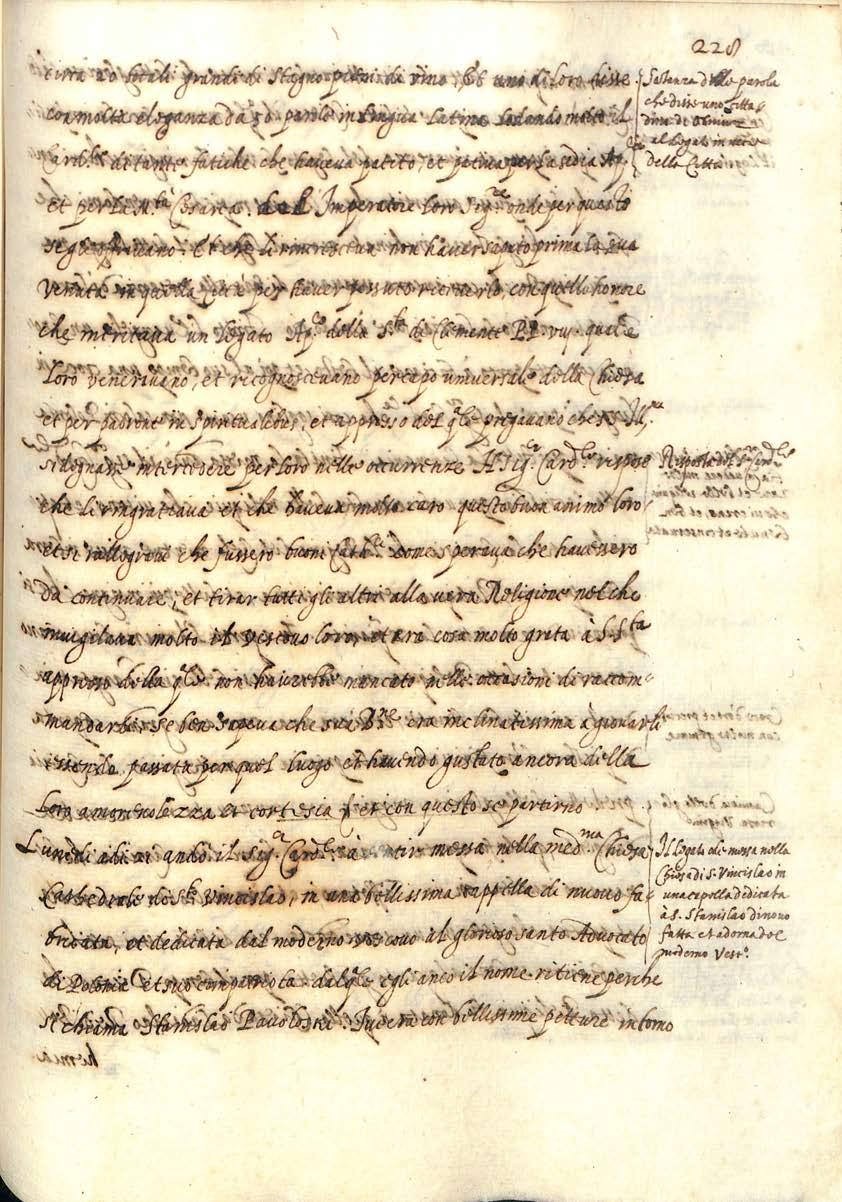 228
circa 20 bocali grandi di stagno pieni di vino, et uno di loro disse
con molta eleganza da parole in lingua latina lodando molto il
Card.le di tante fatiche che haveva patito, et pativa per la sedia Ap.
et per la M.tà Cesarea del Imperatore lor Sig.re onde per questo
se gli offrivano. Et che li rincresceva non haver saputo prima la sua
venuta in quella Città per haver possuto riceverlo con quello honore
che meritava un legato Ap.co della S.tà di Clemente PP. viij. qual'e
loro venerivano, et recognoscevano per capo universale della Chiesa
et per padrone in spiritualibus, et appresso del q.le pregavano che S. Ill.ma
si degnasse intercedere per loro nelle occurrenze. Il Sig.r Card.le rispose
che li ringratiava et che haveva molto caro questo buon animo loro
et si rallegrava che fussero buoni Cath.ci come sperava che havessero
da continuare, et tirar tutti gli altri alla vera Religione nel che
invigilava molto il vescovo loro, et era cosa molto grata à S. S.ta
appresso della q.le non haverebbe mancato nelle occasioni di raccom-
mandarli, se ben sapeva che sua B.ne era inclinatissima a giovarli
essendo passata per quel luogo et havendo gustato ancora della
loro amorevolezza et cortesia, et con questo se partirno.
Lunedi adi 21 andò il Sig.r Card.le à messa nella med.ma Chiesa
Cathedrale de S.to Vincislao, in una bellissima cappella di nuovo fa-
bricata, et dedicata dal moderno vescovo al glorioso santo Advocato
di Polonia et suo compatriota dal q.le egli anco il nome ritiene perche
si chiama Stanislao Pavoloski. con bellissime pitture intorno
Sostanza delle parole
che disse uno Citta-
dino di Olmiuz
al Legato in nome
della Città
Risposta del Sig.r Card.le
Il Legato ode messa nella
Chiesa di S. Vincislao in
una capella dedicata
à S. Stanislao di novo
fatta et adorna dal
moderno Vesc.o